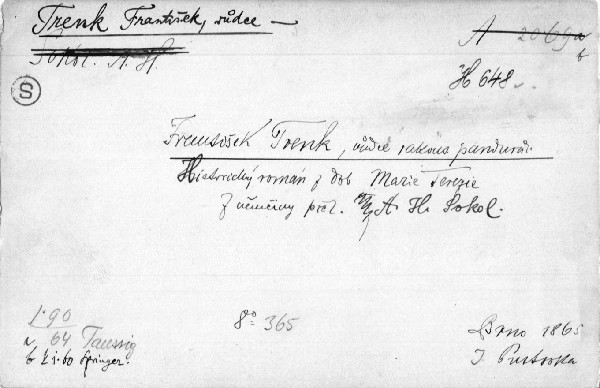 Trenk František, vůdce —
Sokol. A. H.
A 2069 a
b
H 648
S
František Trenk, vůdce rakous. pandurů.
Historický román z dob Marie Terezie
Z němčiny přel. A. H. Sokol.
1·90
a 64 Taussig
b £ 1·60 Springer.
8° 365
Brno 1865